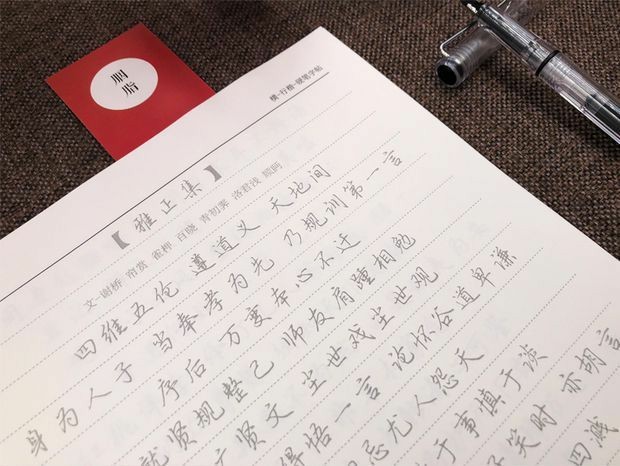 胭脂
横·行楷·硬笔字帖
【雅正集】
文-谢桥 帘赏 奄桦 百晓 青初霁 洛君浅 顾两
四维五伦 遵道义 天地间
身为人子 当奉孝为先 乃规训第一言
序后 万变本心不迁
就贤规整己 师友肩踵相勉
广贤文 尘世戏尘世观
得悟一言 论怀谷道卑谦
忌尤人怨天
于事慎于谈
笑时 亦胡言
四溅